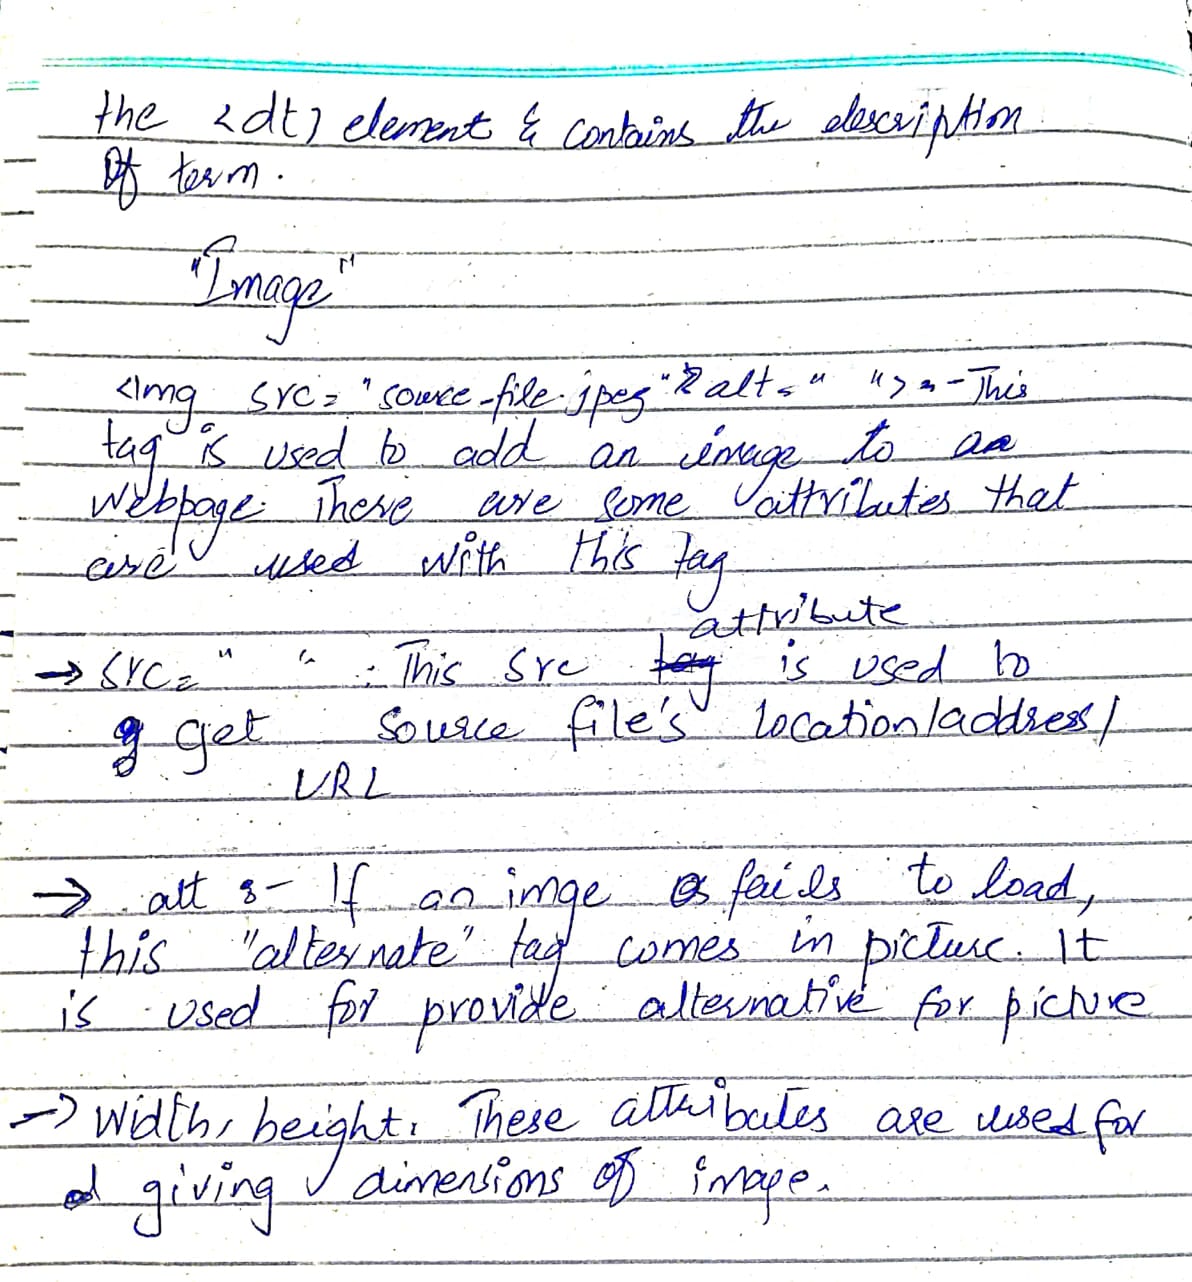 the <dt> element & contains the description
Of term.
"Image"
<img src="source-file.jpeg" alt=" "> :- This
tag is used to add an image to an
webpage. There are some attributes that
are used with this tag
attribute
→ src=" " : This src tag is used to
g get source file's location/address/
URL
→ alt :- If an imge fails to load,
this "alternate" tag comes in picture. It
is used for provide alternative for picture
→ Width, height. These attributes are used for
d giving dimensions of image.